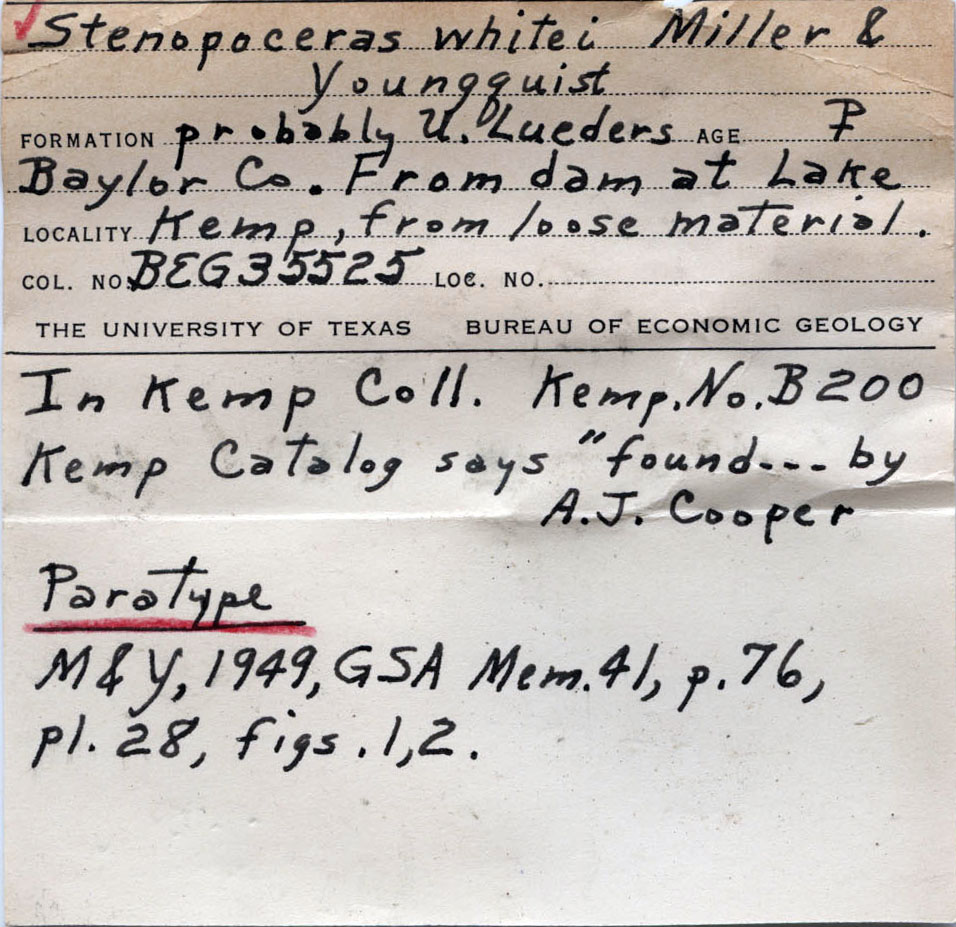 ✓Stenopoceras whitei Miller &
Youngquist
FORMATION probably U. Lueders AGE P
Baylor Co. From dam at Lake
LOCALITY Kemp, from loose material.
COL. NO. BEG35525 LOC. NO.
THE UNIVERSITY OF TEXAS BUREAU OF ECONOMIC GEOLOGY
In Kemp Coll. Kemp. No. B200
Kemp Catalog says "found--- by
A.J. Cooper
Paratype
M & Y, 1949, GSA Mem. 41, p. 76,
pl. 28, figs. 1,2.